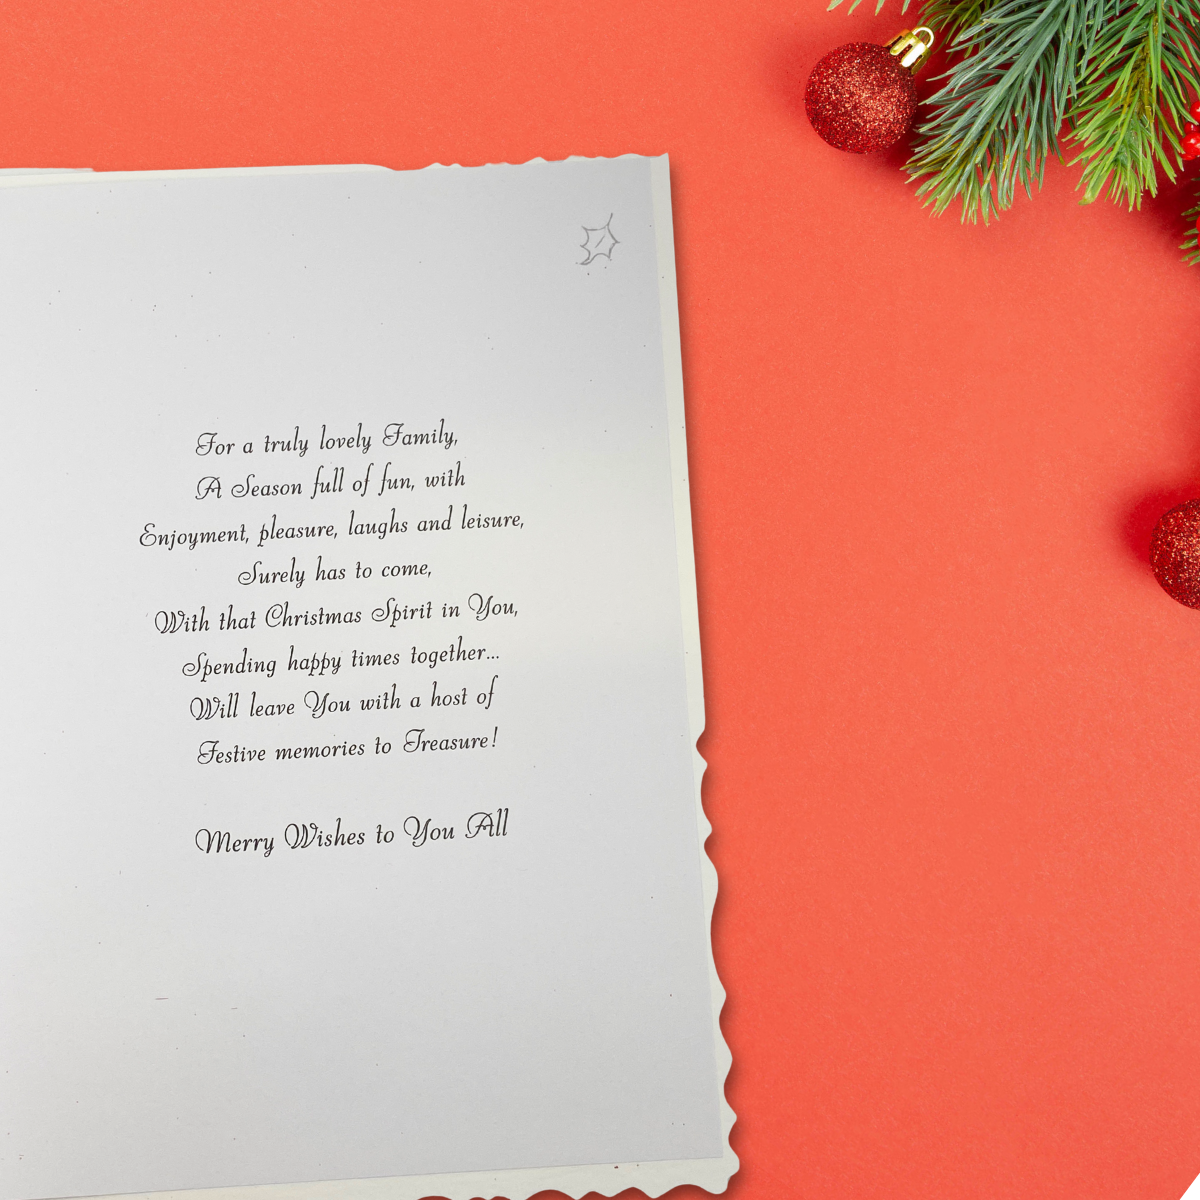 For a truly lovely Family,
A Season full of fun, with
Enjoyment, pleasure, laughs and leisure,
Surely has to come,
With that Christmas Spirit in You,
Spending happy times together...
Will leave You with a host of
Festive memories to Treasure!
Merry Wishes to You All